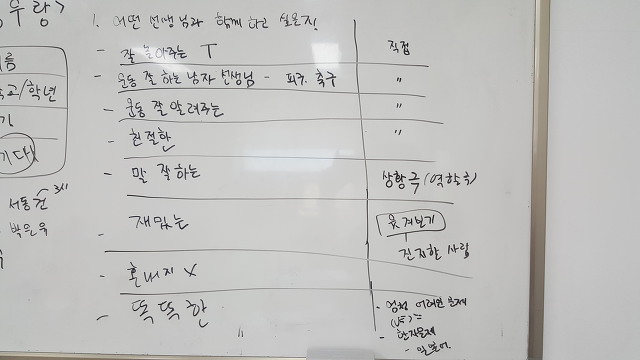 우랑
이름
학교/학년
기대
서동건
박은우
1. 어떤 선생님과 함께 하고 싶은지
- 잘 놀아주는 T
직접
- 운동 잘 하는 남자 선생님 - 피구, 축구
"
- 운동 잘 알려주는
"
- 친절한
"
- 말 잘하는
상황극 (역할극)
- 재밌는
웃겨보기
진지한 사람
- 혼내지 X
- 똑똑한
"
- 엄청 어려운 문제
- 한자문제